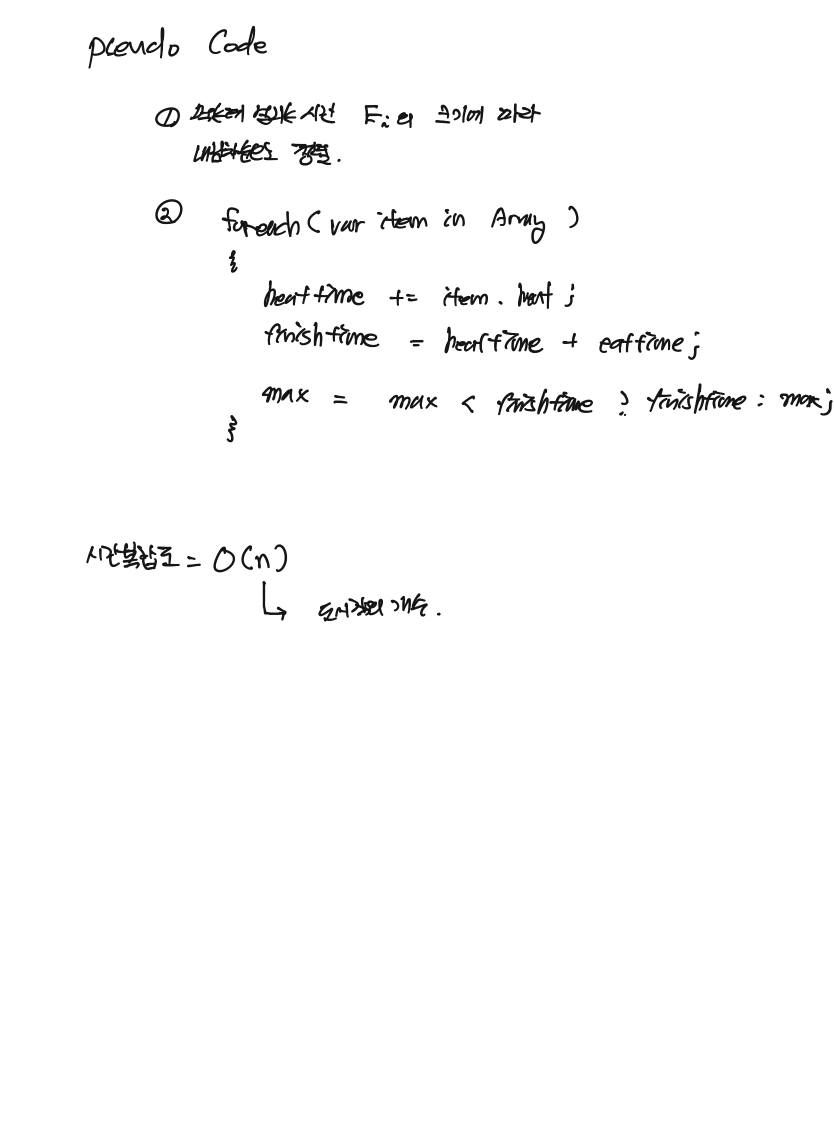 pseudo Code
① 먹는데 걸리는 시간 Ei의 크기에 따라
내림차순으로 정렬.
② foreach ( var item in Array )
{
heattime += item . heat ;
finishtime = heattime + eattime ;
max = max < finishtime ? finishtime : max ;
}
시간복잡도 = O(n)
↳ 도시락의 개수.